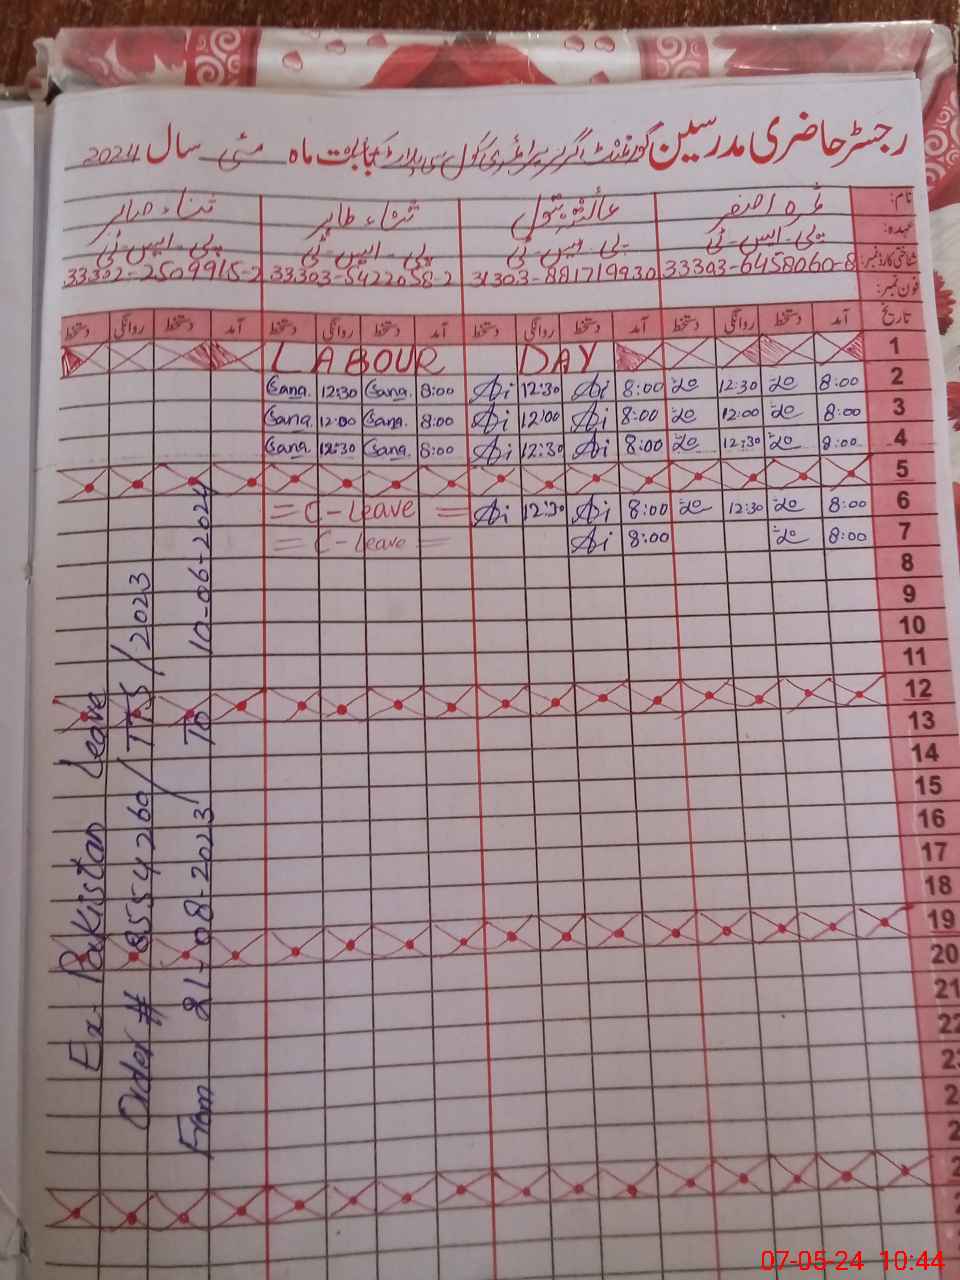 رجسٹر حاضری مدرسین گورنمنٹ گرلز پرائمری سکول بابت ماہ مئی سال 2024
نام: اصغر عائشہ بتول ثناء طاہر ثناء صابر
عہدہ: پی-ایس-ٹی پی-ایس-ٹی پی-ایس-ٹی پی-ایس-ٹی
شناختی کارڈ نمبر: 33303-6458060-8 31303-881719930 33303-5422058-2 33302-2509915-2
فون نمبر:
تاریخ آمد دستخط روانگی دستخط آمد دستخط روانگی دستخط آمد دستخط روانگی دستخط آمد دستخط روانگی دستخط
1 LABOUR DAY
2 8:00 12:30 8:00 Ai 12:30 Ai 8:00 Sana. 12:30 Sana.
3 8:00 12:00 8:00 Ai 12:00 Ai 8:00 Sana. 12:00 Sana.
4 8:00 12:30 8:00 Ai 12:30 Ai 8:00 Sana. 12:30 Sana.
5
6 8:00 12:30 8:00 Ai 12:30 Ai = C-Leave =
7 8:00 8:00 Ai = C-Leave =
8
9
10
11
12
13
14
15
16
17
18
19
20
21
22
Ex-Pakisstan Leave
Order # 8554260/TTS/2023
From 21-08-2023 To 10-06-2024
07-05-24 10:44